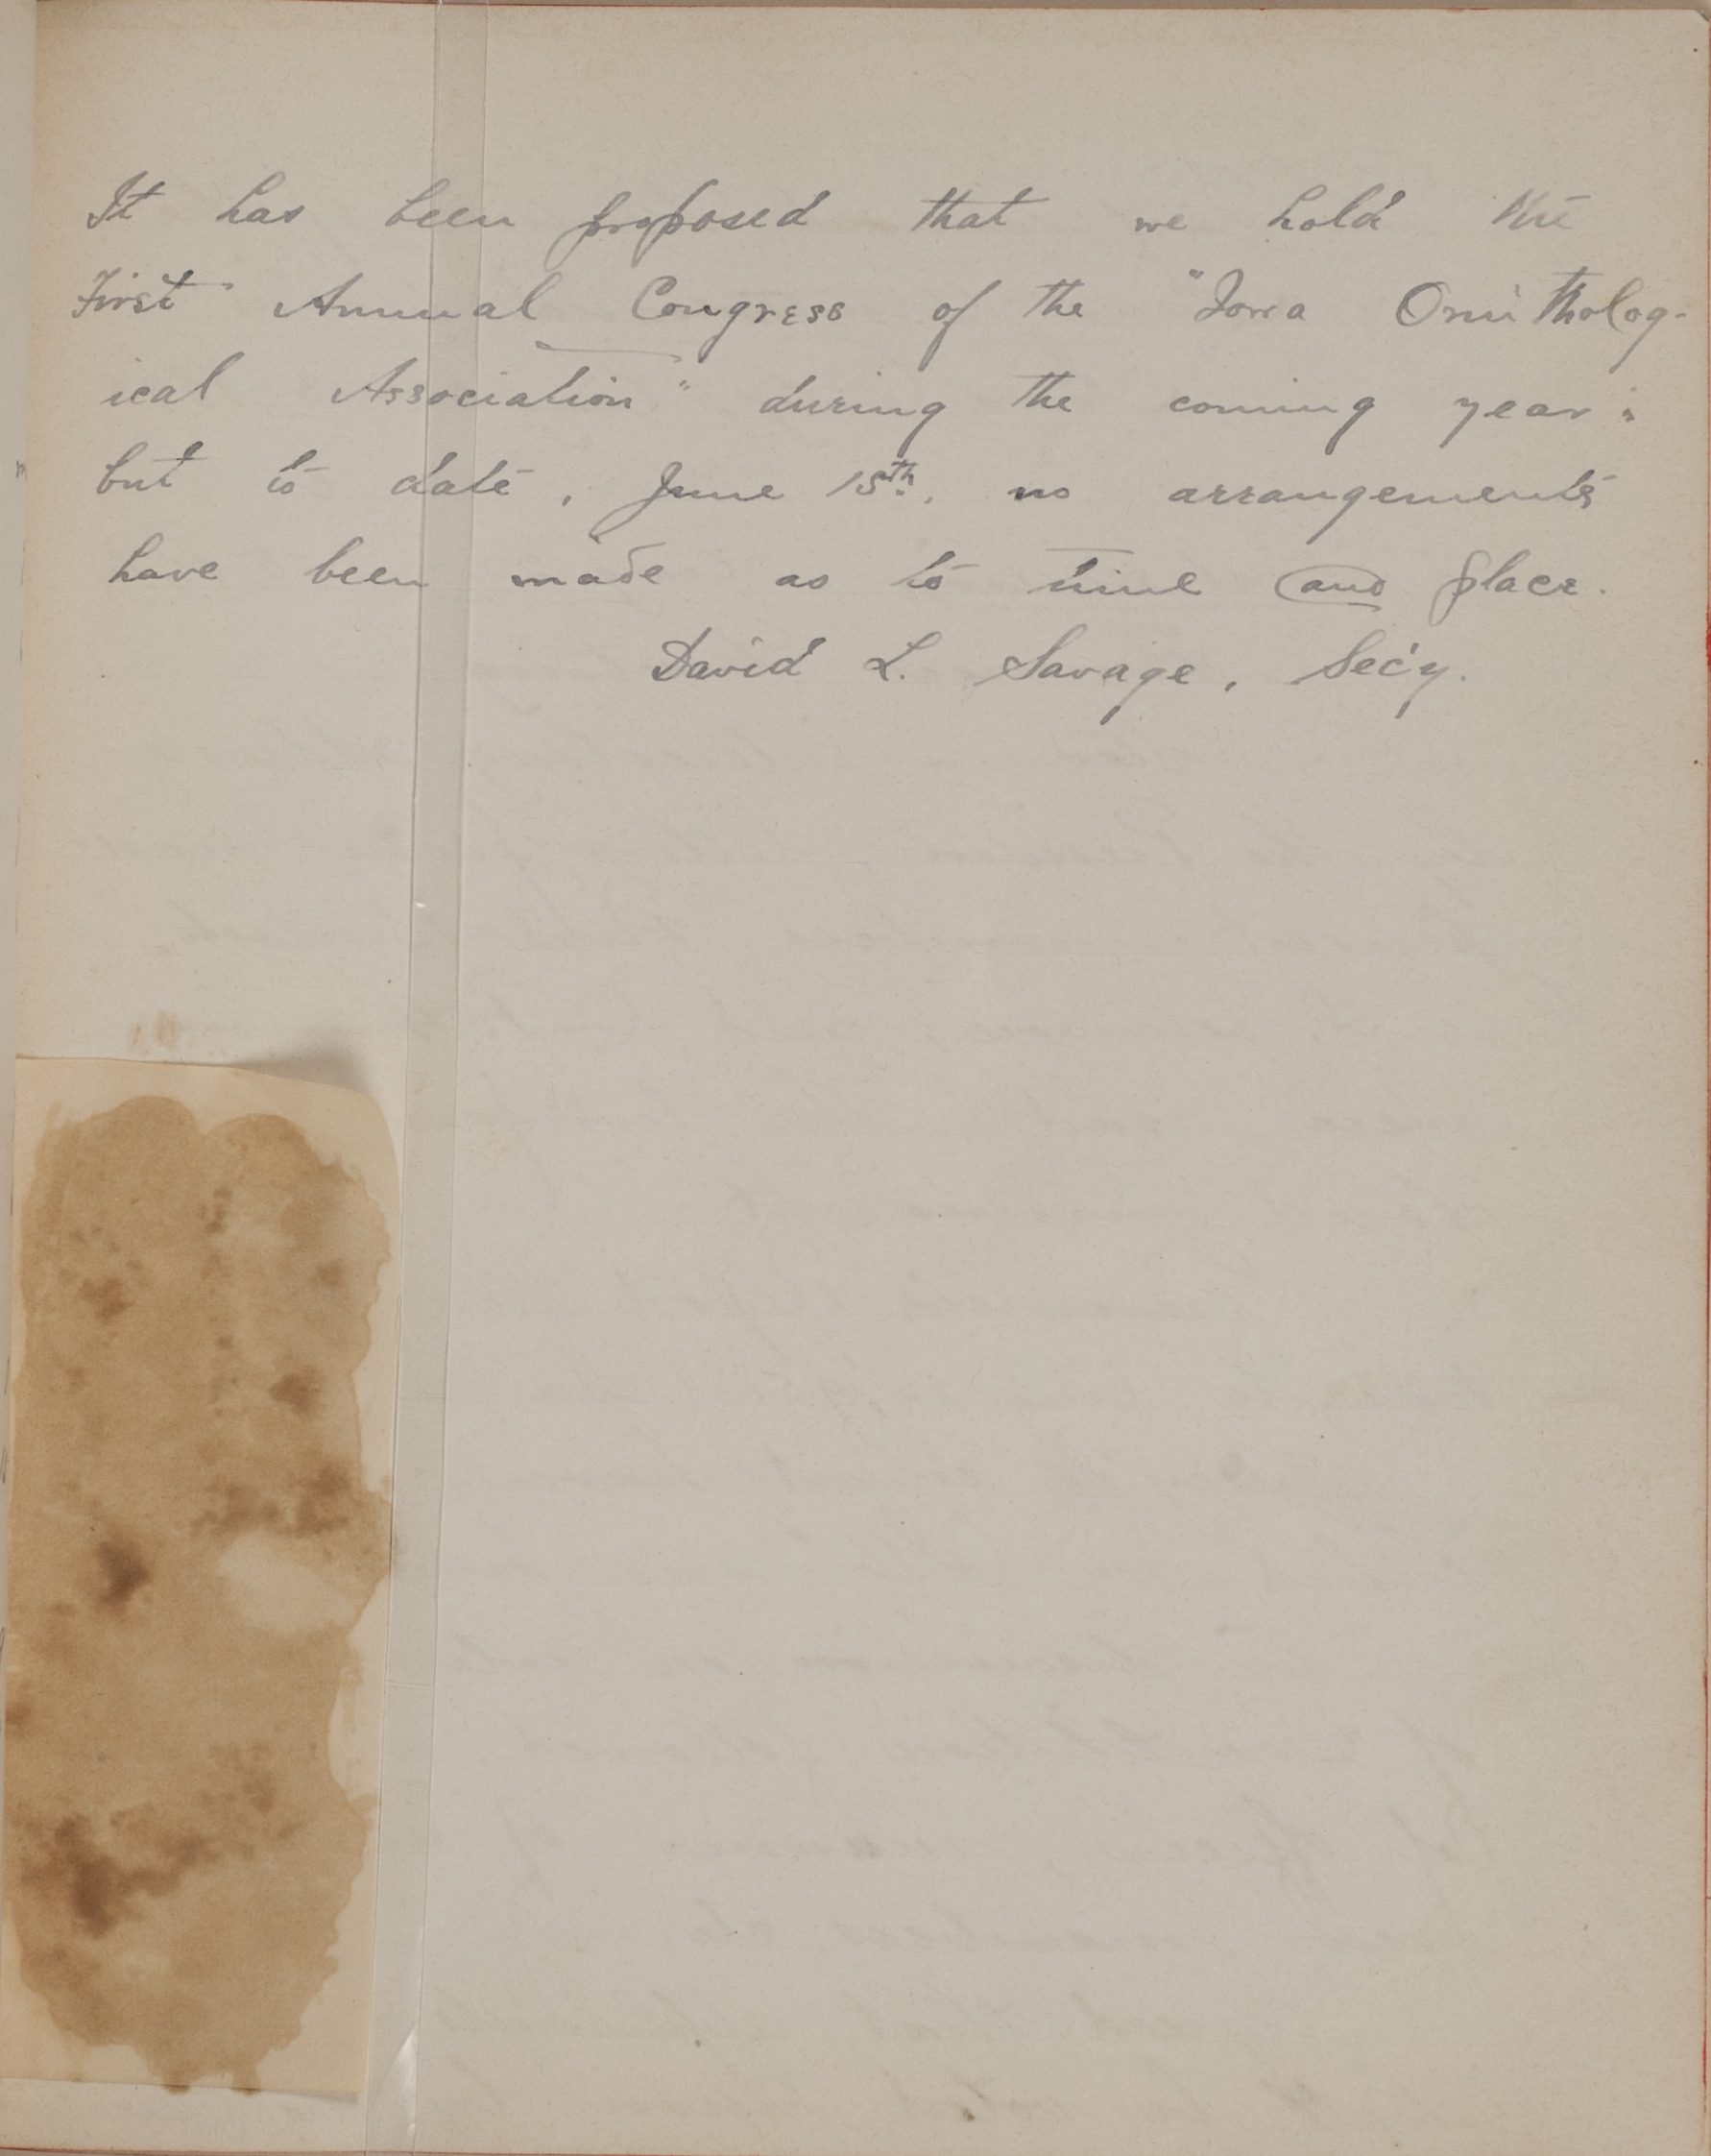 It has been proposed that we hold the
First Annual Congress of the "Iowa Ornitholog-
ical Association" during the coming year;
but to date, June 15th, no arrangements
have been made as to time and place.
David L. Savage, Sec'y.